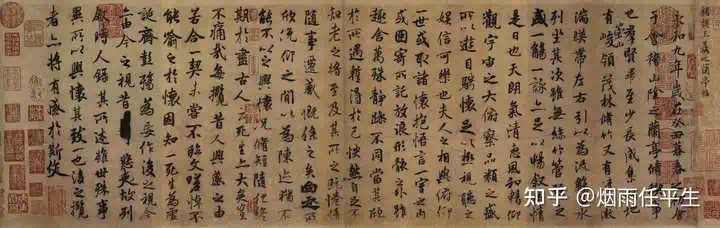 褚模王羲之蘭亭帖
永和九年歲在癸丑暮春之初會
于會稽山陰之蘭亭脩稧事
也羣賢畢至少長咸集此地
有崇山峻領茂林脩竹又有清流激
湍暎帶左右引以為流觴曲水
列坐其次雖無絲竹管弦之
盛一觴一詠亦足以暢敘幽情
是日也天朗氣清惠風和暢仰
觀宇宙之大俯察品類之盛
所以遊目騁懷足以極視聽之
娛信可樂也夫人之相與俯仰
一世或取諸懷抱悟言一室之內
或因寄所託放浪形骸之外雖
趣舍萬殊靜躁不同當其欣
於所遇蹔得於己怏然自足不
知老之將至及其所之既惓情
隨事遷感慨係之矣向之所
欣俛仰之閒以為陳迹猶不
能不以之興懷況脩短隨化終
期於盡古人云死生亦大矣豈
不痛哉每攬昔人興感之由
若合一契未嘗不臨文嗟悼不
能喻之於懷固知一死生為虛
誕齊彭殤為妄作後之視今
亦由今之視昔悲夫故列
敘時人錄其所述雖世殊事
異所以興懷其致一也後之攬
者亦將有感於斯文
知乎 @烟雨任平生